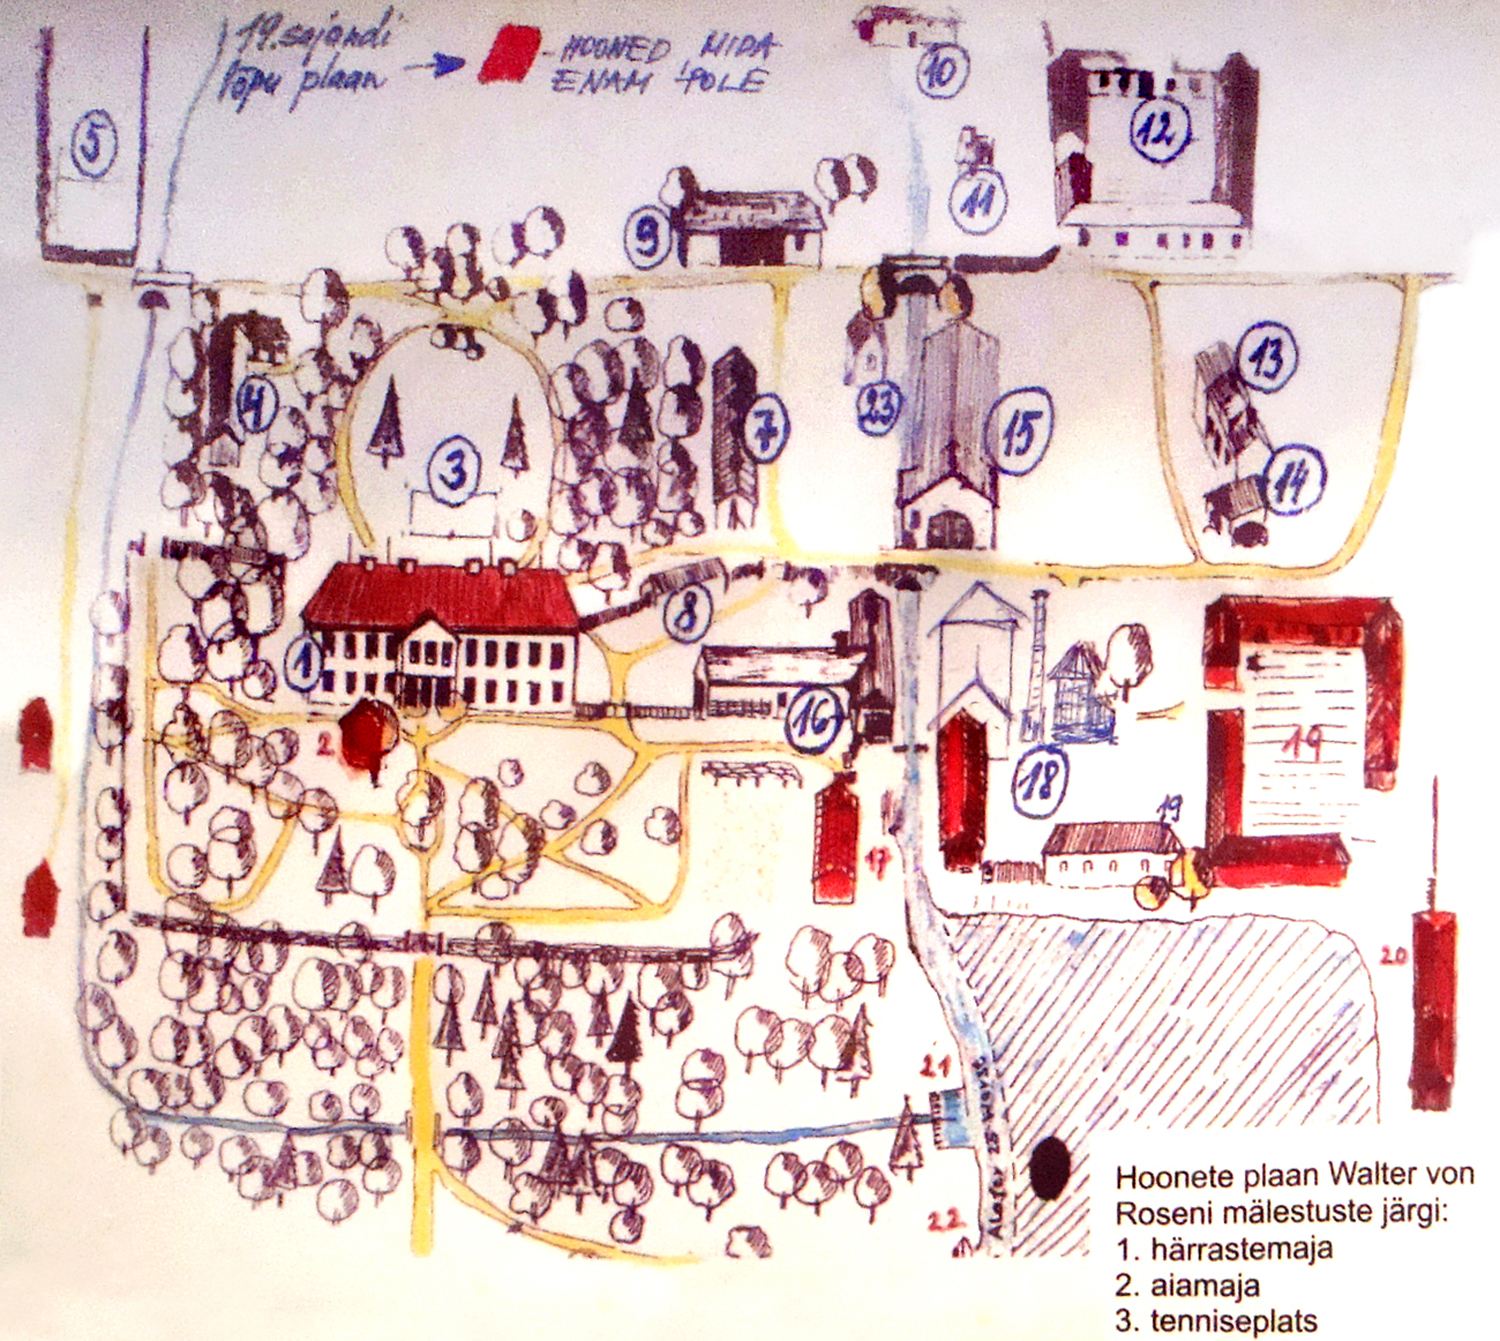 19. sajandi
lõpu plaan
- HOONED MIDA
ENAM POLE
10
5
12
11
9
13
4
23
7
15
3
14
8
1
16
2
19
18
19
17
20
21
22
Hoonete plaan Walter von
Roseni mälestuste järgi:
1. härrastemaja
2. aiamaja
3. tenniseplats